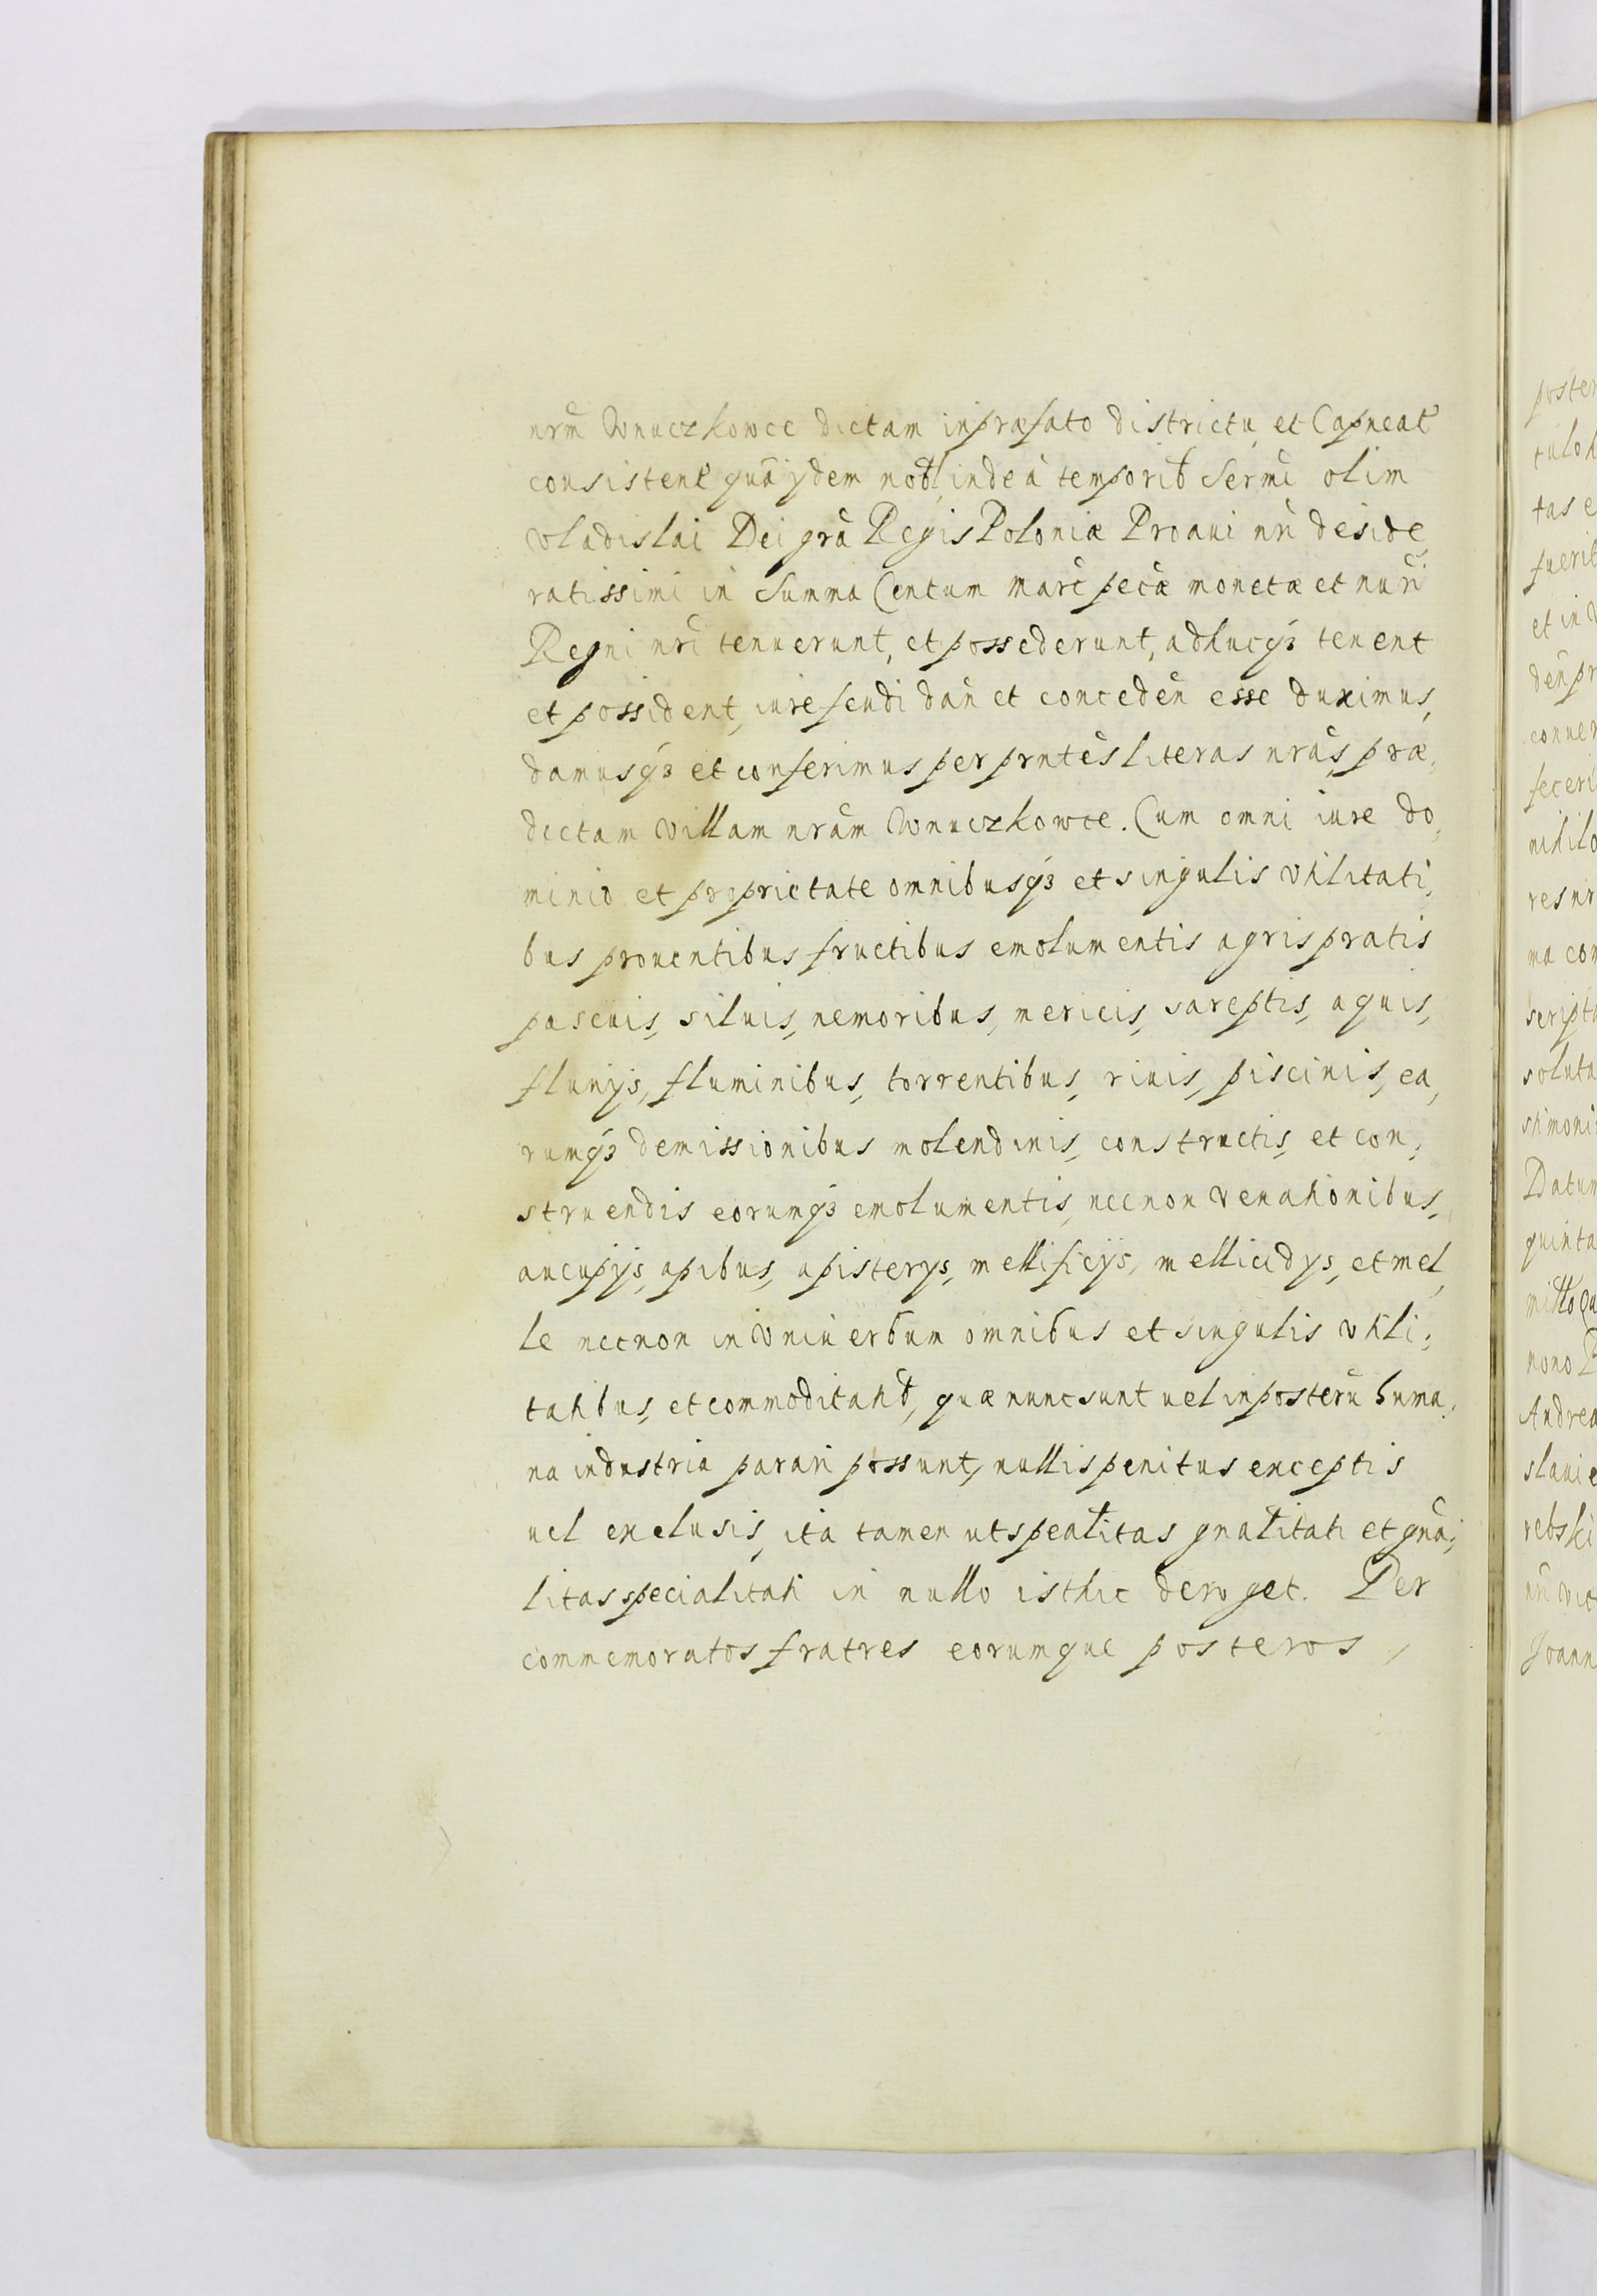 nrm̃ Wnuczkowce dictam in præfato districtu et Capneat̃
consistent̃ quã ijdem nob̃l, inde à temporib̃ Sermi olim
Vladislai Dei grã Regis Poloniæ Proaui nr̃i deside,
ratissimi in Summa Centum Marc̃ pec̃æ monetæ et nur̃i
Regni nr̃i tenuerunt, et possederunt, adhucqз tenent
et possident, iure feudi dañ et concedeñ esse duximus,
damusqз et conferimus per prñtes literas nrãs, præ,
dictam Villam nrãm Wnuczkowce. Cum omni iure do,
minio et proprietate omnibusqз et singulis Vtilitati,
bus prouentibus fructibus emolumentis agris pratis
pascuis, siluis, nemoribus, mericis, sareptis, aquis,
fluuijs, fluminibus, torrentibus, riuis, piscinis, ea,
rumqз demissionibus molendinis, constructis, et con,
struendis eorumqз emolumentis, necnon Venationibus,
aucupijs, apibus, apisterys, mellificijs, mellicidys, et mel,
le necnon in Vniuersum omnibus et singulis vtili,
tatibus, et commoditatib̃, quæ nunc sunt uel in posterũ huma,
na industria parari possunt, nullis penitus exceptis
uel exclusis, ita tamen ut spealitas̃ gnalitati et gñã,
litas specialitati in nullo isthic deroget. Per
commemoratos fratres eorumque posteros,
poster
tas e
fuerit
et in V
deñ pr
conuer
fecerit
nihilo
res nr
ma com
scripta
soluta
stimoni
Datum
quinta
millo Qu
nono
Andrea
slauie
rebski
Joann